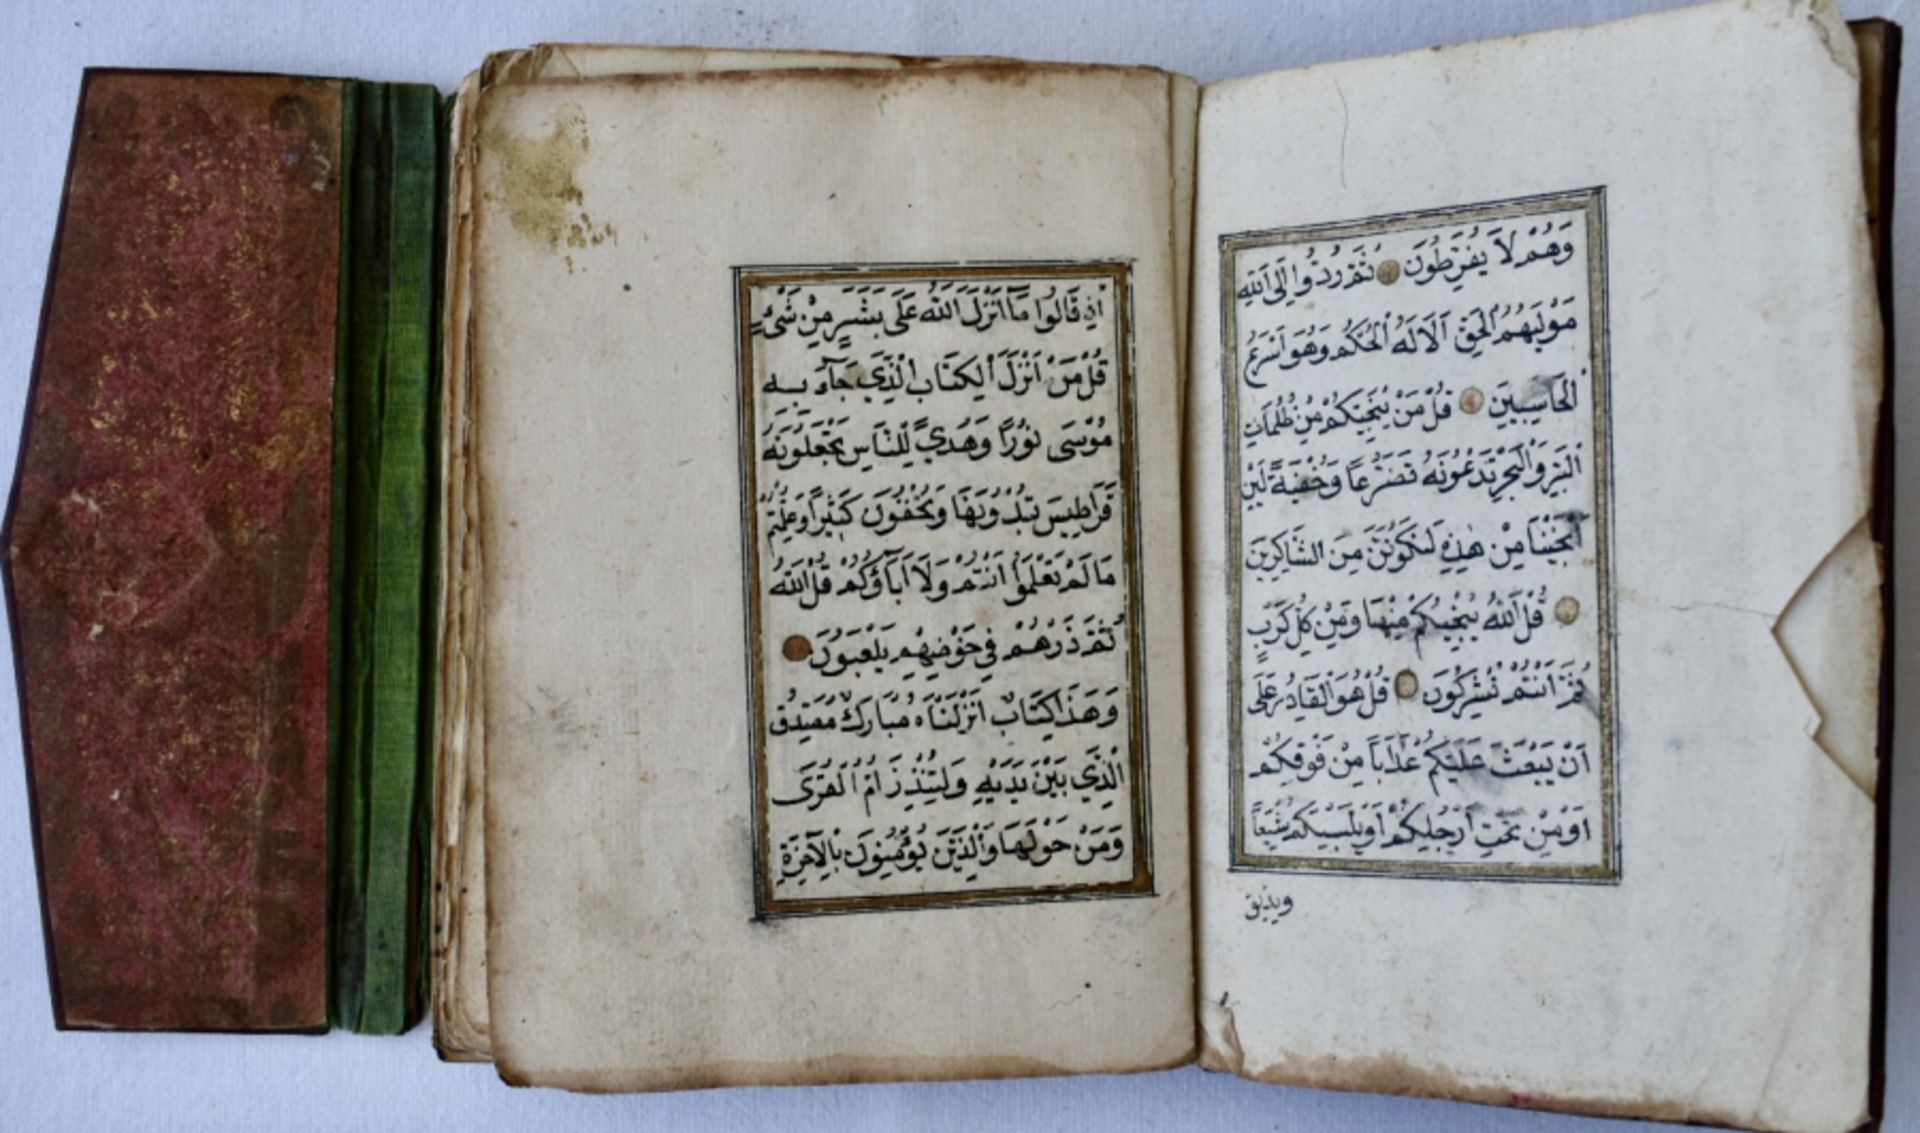 وَهُمْ لَا يُفَرِّطُونَ ثُمَّ رُدُّوا اِلَى اللّٰهِ
مَوْلٰيهُمُ الْحَقِّ اَلَا لَهُ الْحُكْمُ وَهُوَ اَسْرَعُ
الْحَاسِبِينَ قُلْ مَنْ يُنَجِّيكُمْ مِنْ ظُلُمَاتِ
الْبَرِّ وَالْبَحْرِ تَدْعُونَهُ تَضَرُّعًا وَخُفْيَةً لَئِنْ
اَنْجَيْتَنَا مِنْ هٰذِهِ لَنَكُونَنَّ مِنَ الشَّاكِرِينَ
قُلِ اللّٰهُ يُنَجِّيكُمْ مِنْهَا وَمِنْ كُلِّ كَرْبٍ
ثُمَّ اَنْتُمْ تُشْرِكُونَ قُلْ هُوَ الْقَادِرُ عَلَى
اَنْ يَبْعَثَ عَلَيْكُمْ عَذَابًا مِنْ فَوْقِكُمْ
اَوْ مِنْ تَحْتِ اَرْجُلِكُمْ اَوْ يَلْبِسَكُمْ شِيَعًا
ويذيق
اِذْ قَالُوا مَٓا اَنْزَلَ اللّٰهُ عَلٰى بَشَرٍ مِنْ شَيْءٍ
قُلْ مَنْ اَنْزَلَ الْكِتَابَ الَّذِي جَٓاءَ بِهِ
مُوسٰى نُورًا وَهُدًي لِلنَّاسِ تَجْعَلُونَهُ
قَرَاطِيسَ تُبْدُونَهَا وَتُخْفُونَ كَثِيرًا وَعُلِّمْتُمْ
مَا لَمْ تَعْلَمُوا اَنْتُمْ وَلَا اٰبَٓاؤُكُمْ قُلِ اللّٰهُ
ثُمَّ ذَرْهُمْ فِي خَوْضِهِمْ يَلْعَبُونَ
وَهَذَا كِتَابٌ اَنْزَلْنَاهُ مُبَارَكٌ مُصَدِّقُ
الَّذِي بَيْنَ يَدَيْهِ وَلِتُنْذِرَ اُمَّ الْقُرٰى
وَمَنْ حَوْلَهَا وَالَّذِينَ يُؤْمِنُونَ بِالْاٰخِرَةِ